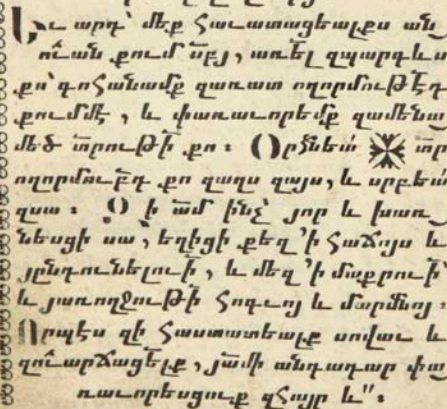 Եւ արդ՝ մեք հաւատացեալքս ան
ուամբ քում տէր, առեալ զպարգևս
քո՝ գոհանամք զառատ ողորմութէդ
քումմէ, և փառաւորեմք զամենա
մեծ տրութիւն քո։ Օրհնեա՛ ※ տր
ողորմութբդ քո զաղս զայս, և սրբեա՛
զսա։ Զի ամ ինչ՝ յոր և խառ
նեսցի սա, եղիցի քեզ՝ ի հաճոյս և
յընդունելուի, և մեզ՝ ի մաքրուի
և յառողջութի հոգւոյ և մարմնոյ։
Որպէս զի հաստատեալք սովաւ և
զուարճացեալք, յամի անդադար փա
ռաւորեսցուք զհայր և՛՛։